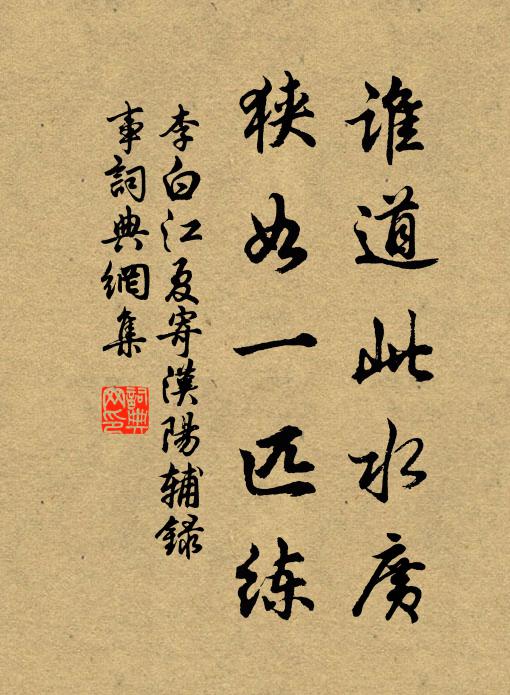 誰道此水廣
狹如一匹练
李白江夏寄漢陽辅録
事詞典網集
詞典
网印